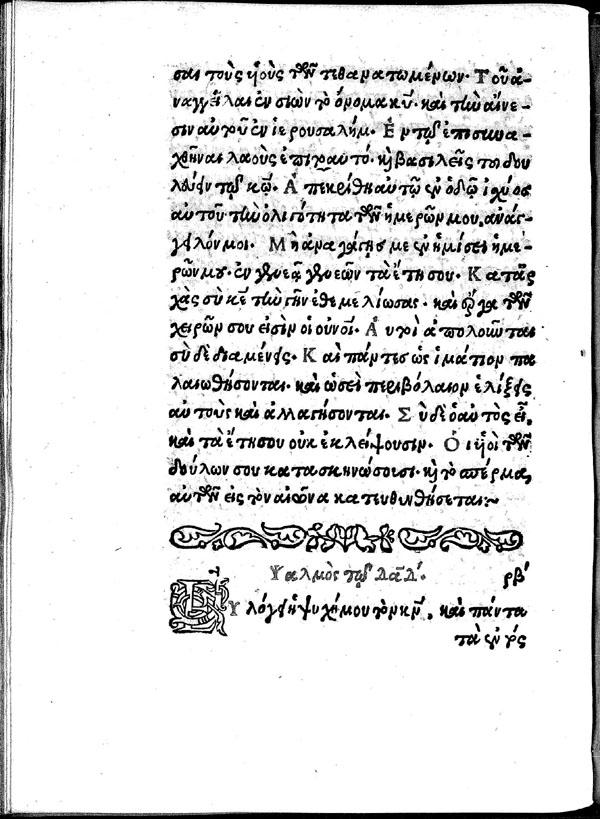 σαι τοὺς υἱοὺς τῶν τεθανατωμένων. Τοῦ ἀ-
ναγγεῖλαι ἐν σιὼν τὸ ὄνομα κυ. καὶ τὴν αἴνε-
σιν αὐτοῦ ἐν ἱερουσαλήμ. Ἐν τῷ ἐπισυνα-
χθῆναι λαοὺς ἐπιτοαυτό. κὴ βασιλεῖς τοῦ δου
λεύειν τῷ κῷ. Ἀπεκρίθη αὐτῷ ἐν ὁδῷ ἰσχύος
αὐτοῦ. τὴν ὀλιγότητα τῶν ἡμερῶν μου, ἀνάγ-
γειλόν μοι. Μὴ ἀναγάγῃς με ἐν ἡμίσει ἡμε-
ρῶν μου. ἐν γενεᾷ γενεῶν τὰ ἔτη σου. Κατ' ἀρ
χὰς σὺ κε τὴν γῆν ἐθεμελίωσας. καὶ ἔργα τῶν
χειρῶν σου εἰσὶν οἱ οὐνοί. Αὐτοὶ ἀπολοῦνται
σὺ δὲ διαμένεις. Καὶ πάντες ὡς ἱμάτιον πα
λαιωθήσονται. καὶ ὡσεὶ περιβόλαιον ἑλίξεις
αὐτοὺς καὶ ἀλλαγήσονται. Σὺ δὲ ὁ αὐτὸς εἶ,
καὶ τὰ ἔτη σου οὐκ ἐκλείψουσιν. Οἱ υἱοὶ τῶν
δούλων σου κατασκηνώσουσι. κὴ τὸ σπέρμα,
αὐτῶν εἰς τὸν αἰῶνα κατευθυνθήσεται
Ψαλμὸς τῷ Δαδ. ρβ'
Εὐλόγει ἡ ψυχή μου τὸν κν, καὶ πάντα
τὰ ἐντός